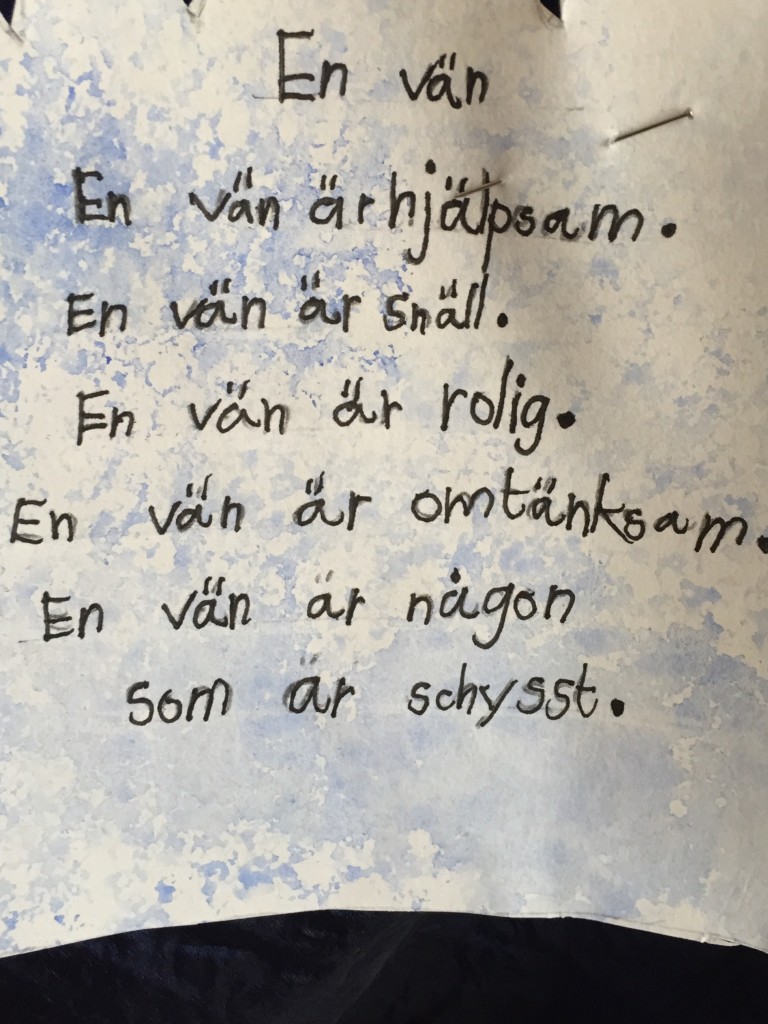 En vän
En vän är hjälpsam.
En vän är snäll.
En vän är rolig.
En vän är omtänksam.
En vän är någon
som är schysst.